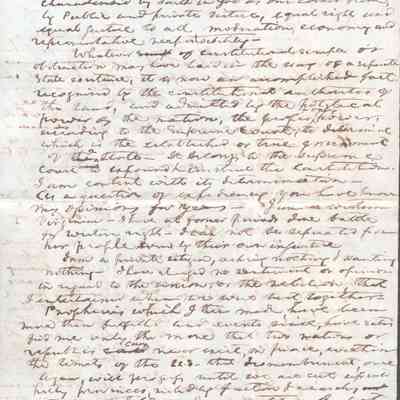 characterised by faith in God as our
by Public and private virtue, equal rights and
equal justice to all, moderation, economy and
representative responsibility —
Whatever of constitutional scruple or
obstruction may have laid in the way of a separate
State existence, it is now an accomplished fact
recognised by the constitutional authorities of
the land, and admitted by the political
power of the nation, the proper power,
according to the Supreme Court, to determine
which is the established or true government
of a State — It belongs to the Supreme
Court to expound & construe the Constitution.
I am content with its determination.
As a question of expediency, you have known
my opinions for years — I am a western
Virginian — I have at former periods done battle
for western rights — I can not be separated from
her people even by their own injustice.
I am a private citizen, asking nothing & wanting
nothing — I have changed no sentiment or opinion
in regard to the union, or the rebellion, that
I entertained when we were last together —
Prophecies which I then made have been
more than fulfilled and events since, have satis
fied me only the more that two nations or
republics can never exist, in peace, within
the limits of the U.S. — that dismemberment, once
begun, will go on until we are cut up into
petty provinces,